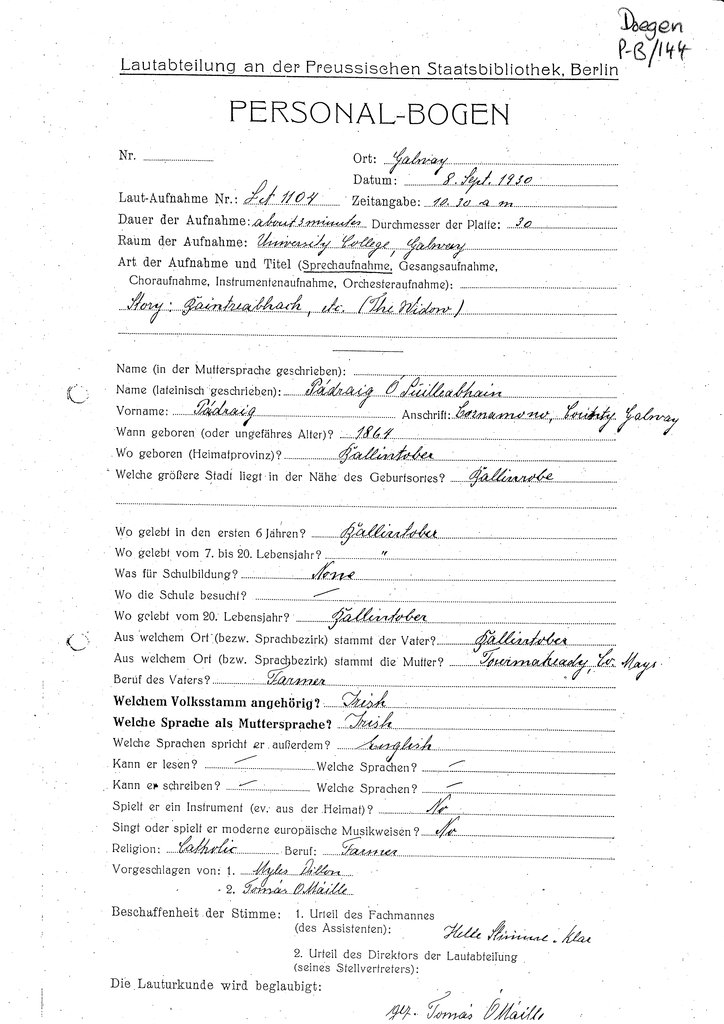 Doegen
P-B/144
Lautabteilung an der Preussischen Staatsbibliothek, Berlin
PERSONAL-BOGEN
Nr. Ort: Galway
Datum: 8. Sept. 1930
Laut-Aufnahme Nr.: Let 1104 Zeitangabe: 10.30 a m
Dauer der Aufnahme: about 3 minutes Durchmesser der Platte: 30
Raum der Aufnahme: University College, Galway
Art der Aufnahme und Titel (Sprechaufnahme, Gesangsaufnahme,
Choraufnahme, Instrumentenaufnahme, Orchesteraufnahme):
Story: Baintreabhach, etc. (The Widow)
Name (in der Muttersprache geschrieben):
Name (lateinisch geschrieben): Pádraig Ó Súilleabhain
Vorname: Pádraig Anschrift: Cornamona, County Galway
Wann geboren (oder ungefähres Alter)? 1864
Wo geboren (Heimatprovinz)? Ballintober
Welche größere Stadt liegt in der Nähe des Geburtsortes? Ballinrobe
Wo gelebt in den ersten 6 Jahren? Ballintober
Wo gelebt vom 7. bis 20. Lebensjahr? "
Was für Schulbildung? None
Wo die Schule besucht? —
Wo gelebt vom 20. Lebensjahr? Ballintober
Aus welchem Ort (bezw. Sprachbezirk) stammt der Vater? Ballintober
Aus welchem Ort (bzw. Sprachbezirk) stammt die Mutter? Tourmakeady, Co. Mayo
Beruf des Vaters? Farmer
Welchem Volksstamm angehörig? Irish
Welche Sprache als Muttersprache? Irish
Welche Sprachen spricht er außerdem? English
Kann er lesen? — Welche Sprachen? —
Kann er schreiben? — Welche Sprachen? —
Spielt er ein Instrument (ev. aus der Heimat)? No
Singt oder spielt er moderne europäische Musikweisen? No
Religion: Catholic Beruf: Farmer
Vorgeschlagen von: 1. Myles Dillon
2. Tomás Ó Máille
Beschaffenheit der Stimme: 1. Urteil des Fachmannes
(des Assistenten): Helle Stimme. Klar
2. Urteil des Direktors der Lautabteilung
(seines Stellvertreters):
Die Lauturkunde wird beglaubigt:
gez. Tomás Ó Máille